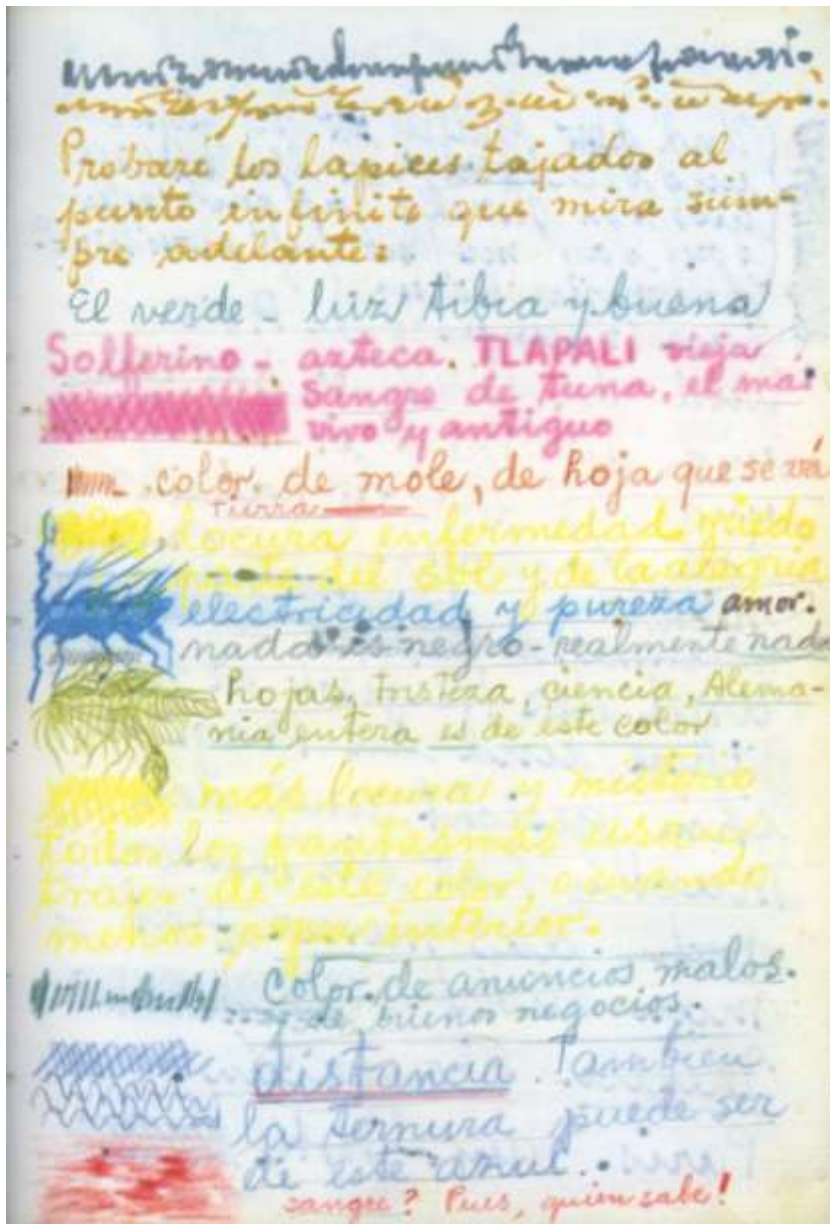 Probaré los lapices tajados al
punto infinito que mira siem-
pre adelante:
El verde - luz tibia y buena
Solferino - azteca. TLAPALI vieja
sangre de tuna, el más
vivo y antiguo
color de mole, de hoja que se vá
tierra
locura enfermedad miedo
parte del sol y de la alegria
electricidad y pureza amor.
nada es negro - realmente nada
hojas, tristeza, ciencia, Alema-
nia entera es de este color
más locura y misterio
todos los fantasmas usan
trajes de este color, o cuando
menos ropa interior.
color de anuncios malos.
y de buenos negocios.
distancia También
la ternura puede ser
de este azul.
sangre? Pues, quien sabe!